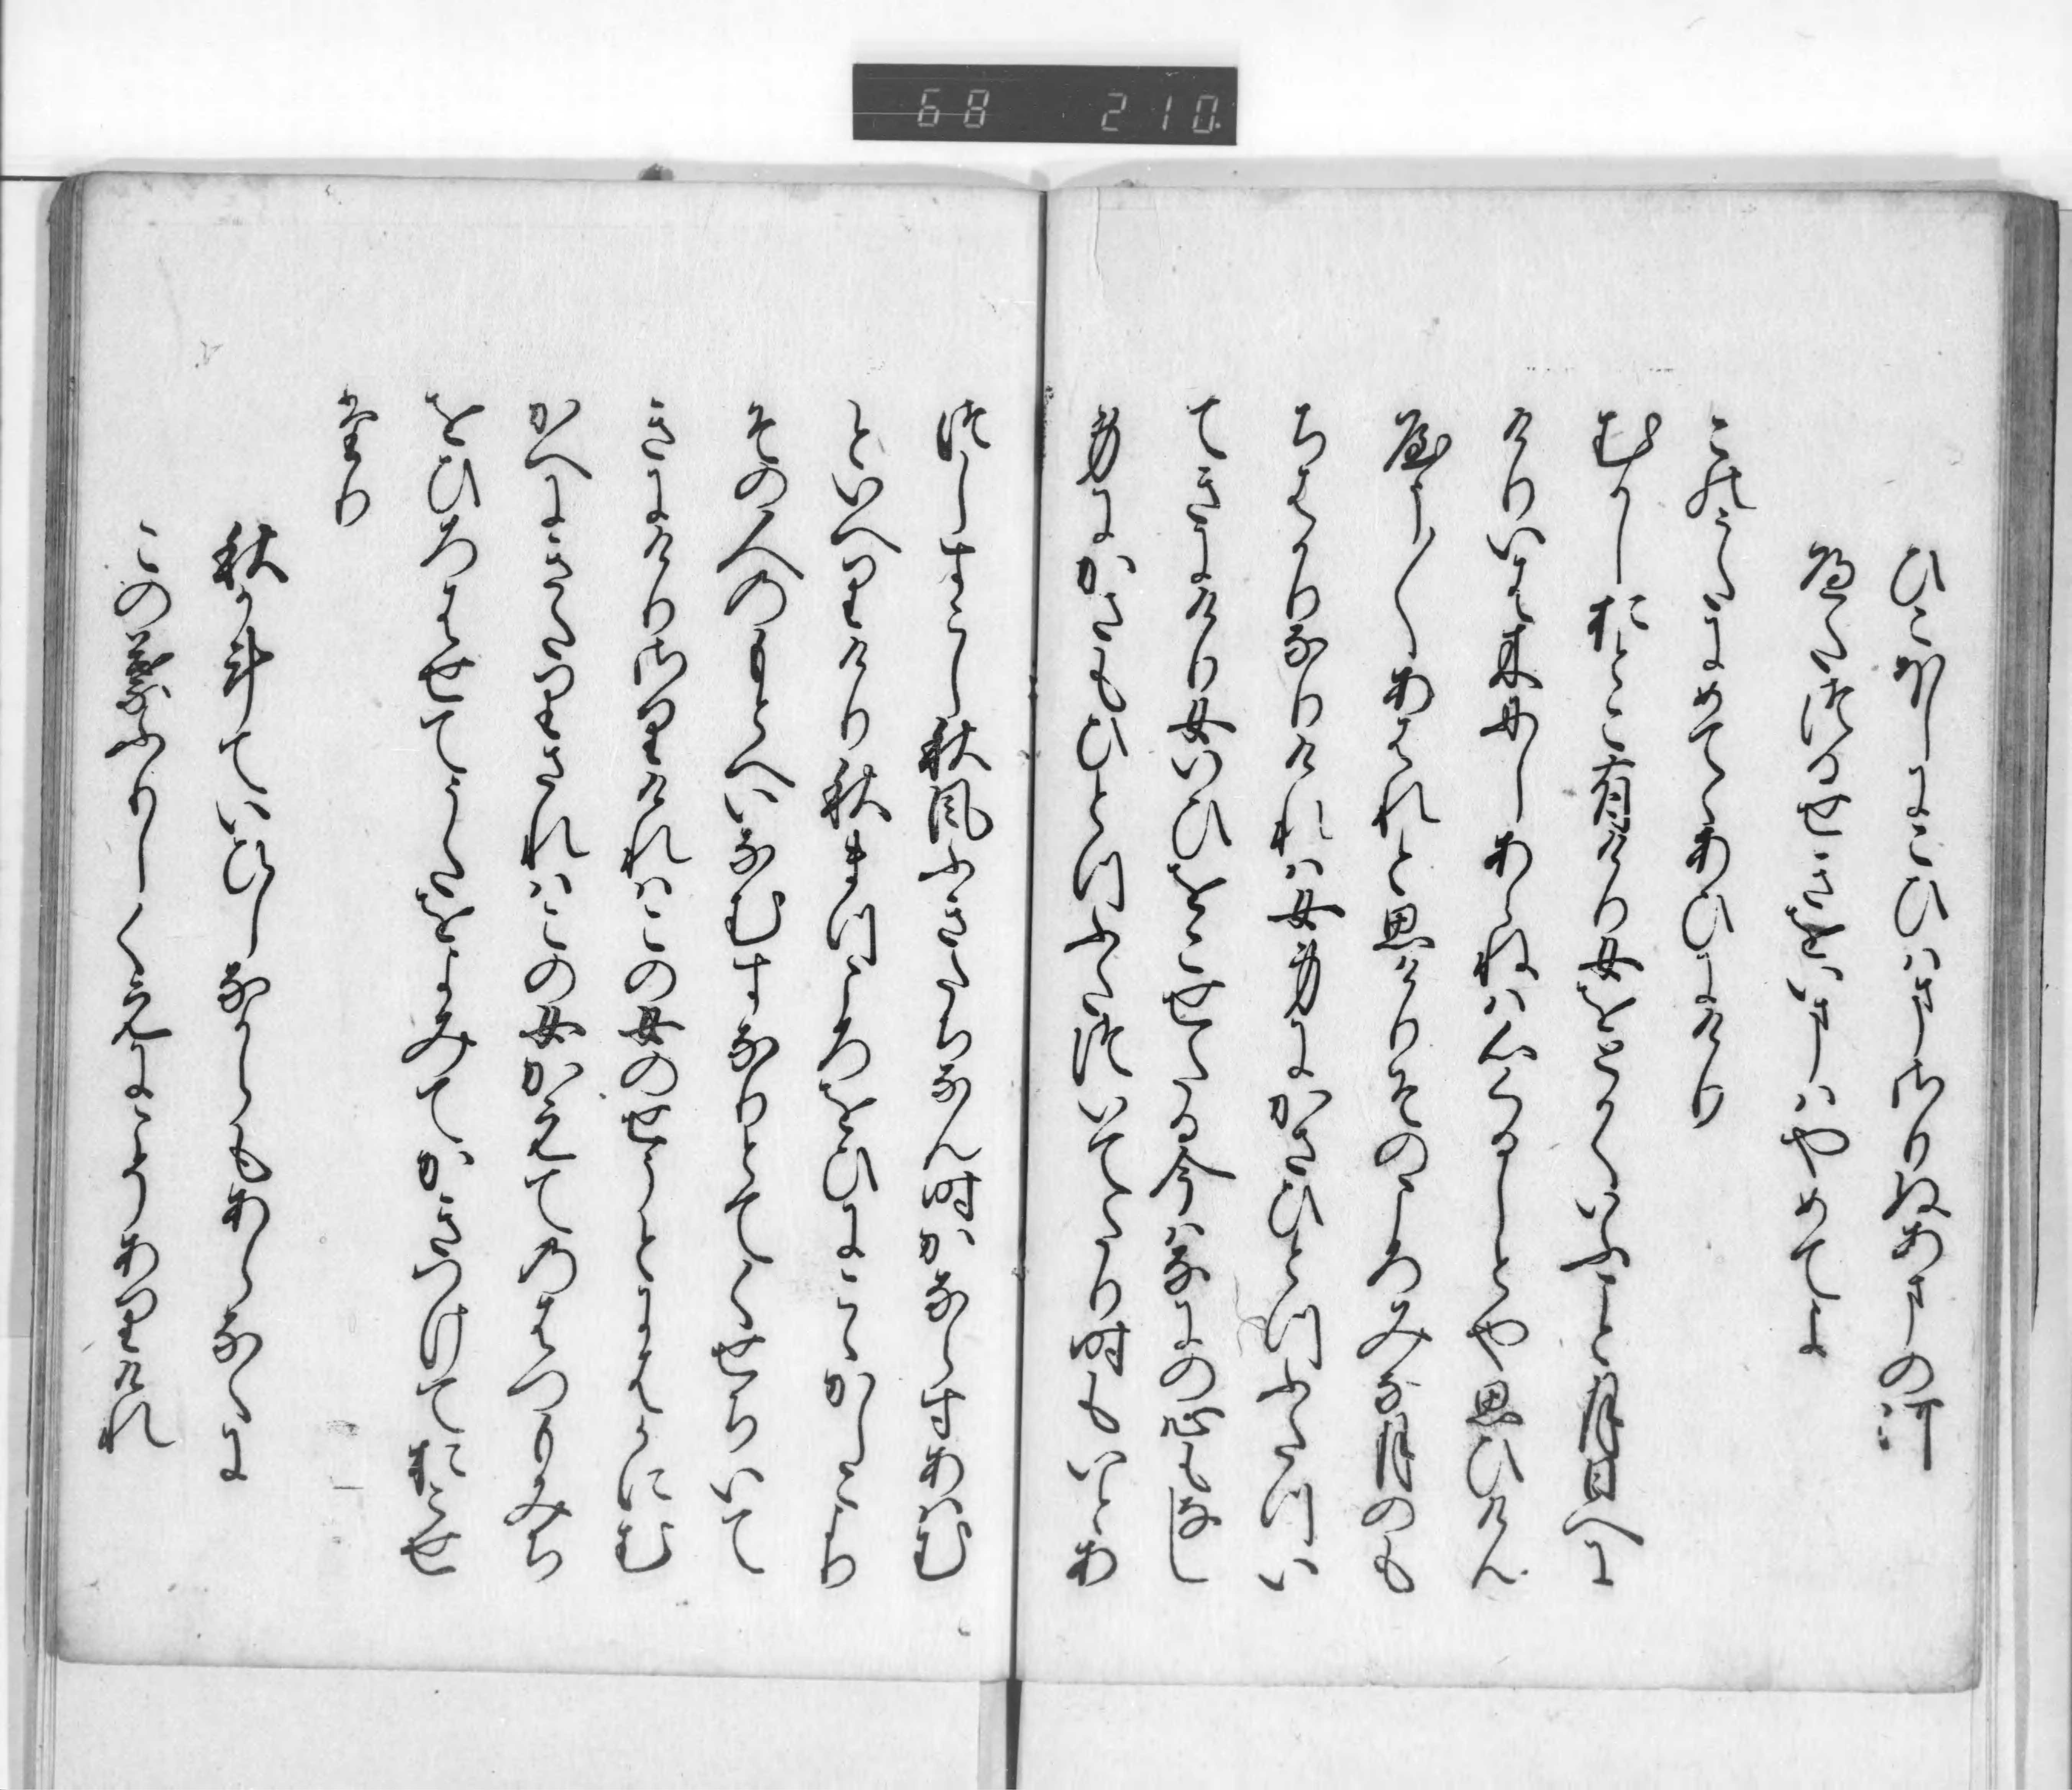 68 210
ひこほしにこひはまさりぬあまの河
へたつるせきをいまはやめてよ
このうたにめてゝあひにけり
むかしおとこ有けり女をとかくいふこと月日へに
けりいは木にしあらねは心くるしとや思ひけん
やう／＼あはれと思けりそのころみな月のも
ちはかりなりけれは女身にかさひとつふたついて
てきにけり女いひをこせたる今はなにの心もなし
身にかさもひとつふたついてたり時もいとあ
つしすこし秋風ふきたちなん時かならすあはむ
といへりけり秋まつころをひにこゝかしこより
その人のもとへいなむすなりとてくせちいて
きにけりさりけれはこの女のせうとにはかにむ
かへにきたりされはこの女かえてのはつもみち
をひろはせてうたをよみてかきつけておこせ
たり
秋かけていひしなからもあらなくに
この葉ふりしくえにこそありけれ